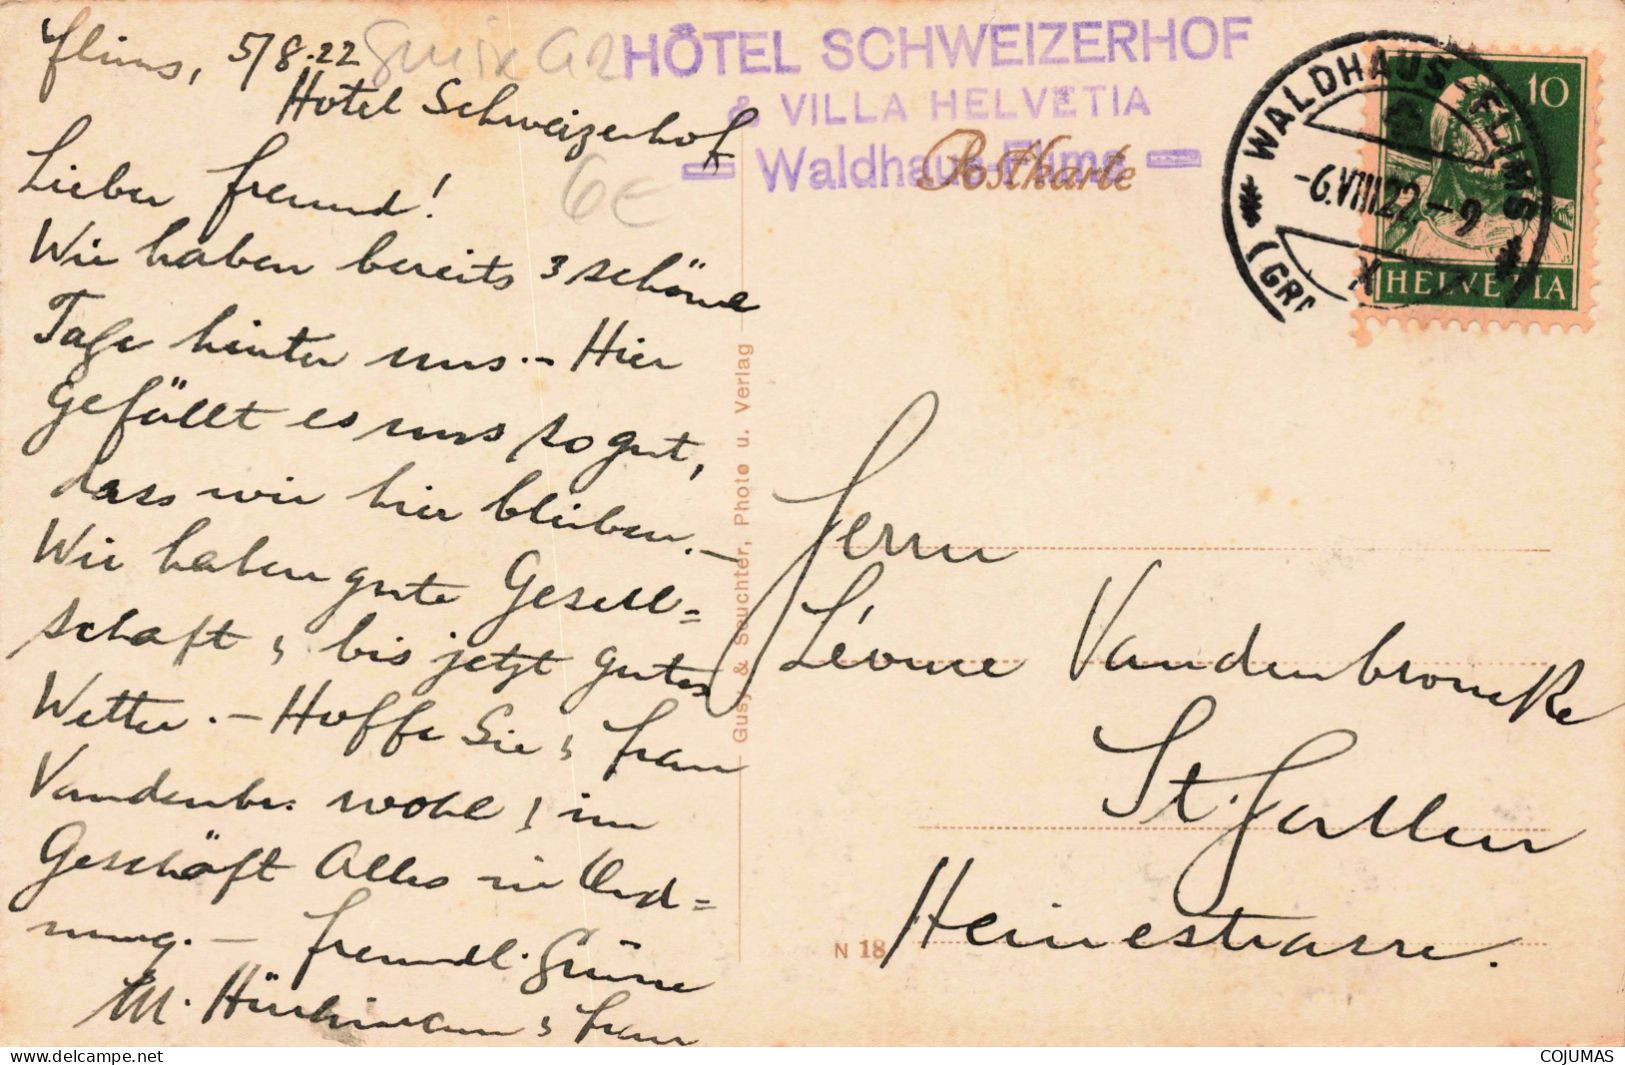 Flims, 5/8.22
Hotel Schweizerhof
Lieber Freund!
Wir haben bereits 3 schöne
Tage hinter uns. – Hier
gefällt es uns so gut,
dass wir hier bleiben. –
Wir haben gute Gesell=
schaft & bis jetzt gutes
Wetter. – Hoffe Sie & Frau
Vandenbr. wohl & im
Geschäft Alles in Ord=
nung. – Freundl. Grüsse
M. Hürlimann & Frau
6€
HÔTEL SCHWEIZERHOF
& VILLA HELVETIA
= Waldhaus-Flims =
Postkarte
WALDHAUS (FLIMS)
-6.VIII.22.-9
10
HELVETIA
Gusy & Souchter, Photo u. Verlag
Herrn
Léonce Vandenbroucke
St. Gallen
Heinestrasse.
N 18
COJUMAS